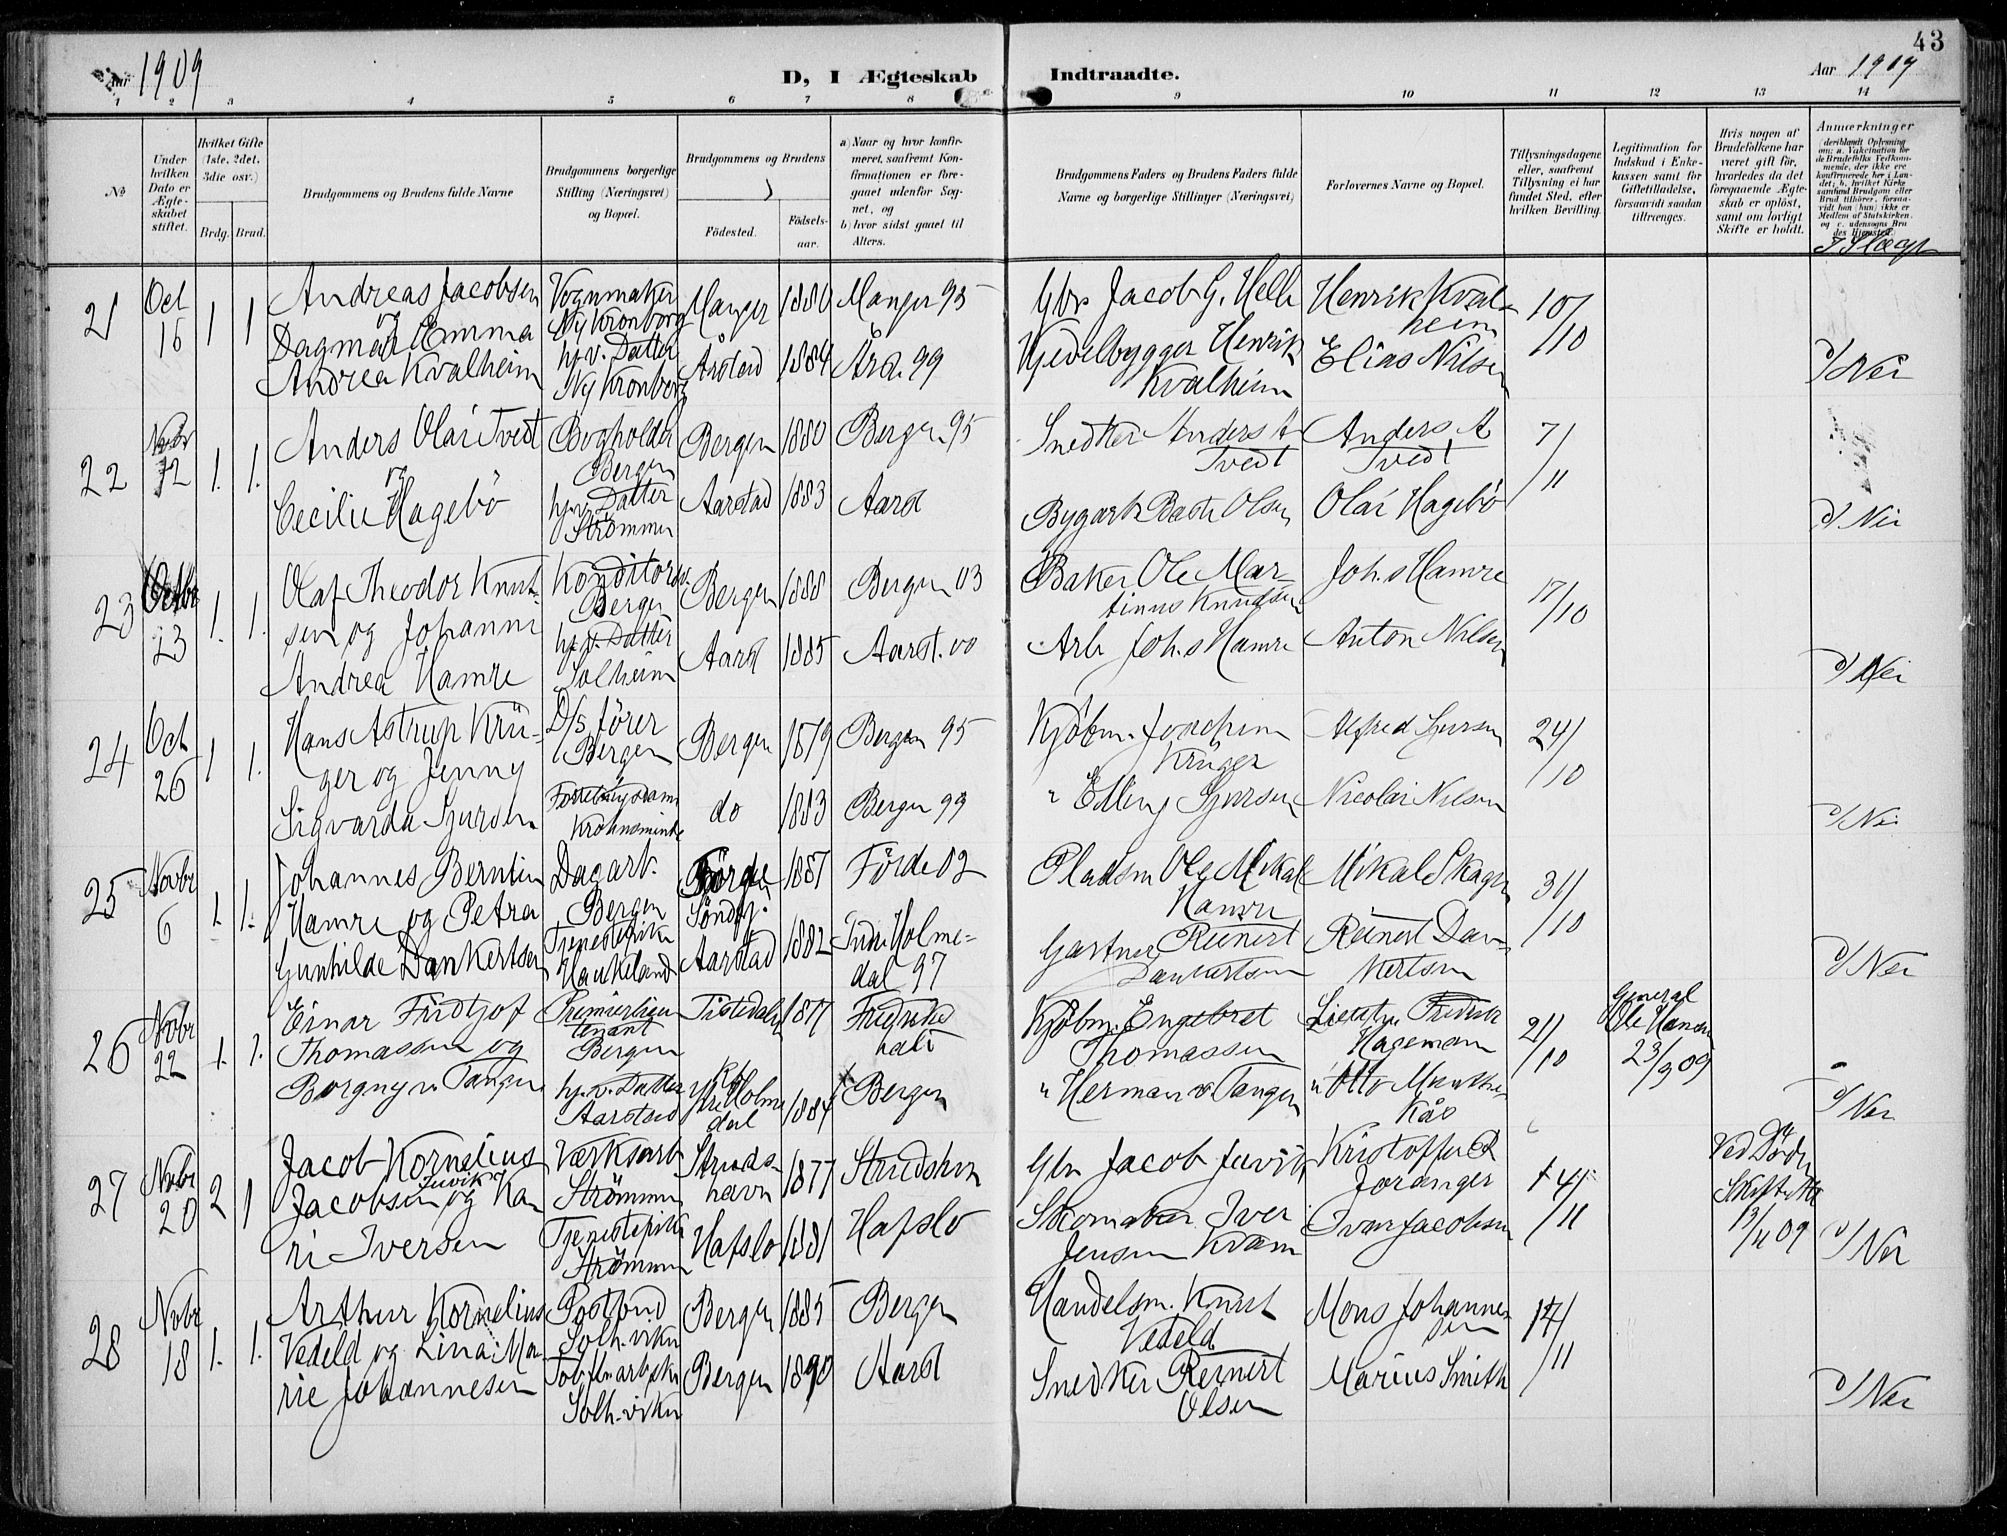 43
Aar 1909
D, I Ægteskab Indtraadte.
Aar 1909
1 2 3 4 5 6 7 8 9 10 11 12 13 14
No
Under hvilken Dato er Ægteskabet stiftet.
Hvilket Gifte (1ste, 2det, 3die osv.)
Brdg. Brud.
Brudgommens og Brudens fulde Navne
Brudgommens borgerlige Stilling (Næringsvei) og Bopæl.
Brudgommens og Brudens
Födested.
Födselsaar.
a) Naar og hvor konfirmeret, saafremt Konfirmationen er foregaaet udenfor Sognet, og
b) hvor sidst gaaet til Alters.
Brudgommens Faders og Brudens Faders fulde Navne og borgerlige Stillinger (Næringsvei)
Forlovernes Navne og Bopæl.
Tillysningsdagene eller, saafremt Tillysning ei har fundet Sted, efter hvilken Bevilling.
Legitimation for Indskud i Enkekassen samt for Giftetilladelse, forsaavidt saadan tiltrænges.
Hvis nogen af Brudefolkene har været gift för, hvorledes da det foregaaende Ægteskab er oplöst, samt om lovligt Skifte er holdt.
Anmærkninger
(deriblandt Oplysning om: a. Vakcination for de Brudefolks Vedkommende, der ikke ere konfirmerede her i Landet; b. hvilket Kirkesamfund Brudgom eller Brud tilhörer, forsaavidt han (hun) ikke er Medlem af Statskirken, og c. udensogns Brudes Hjemsted.)
I Slægt
21 Oct 16 1 1
Andreas Jacobsen og Dagmar Emma Andrea Kvalheim
Vognmaker Ny Kronborg
hjv. Datter Ny Kronborg
Manger 1880 Manger 95
Årstad 1884 Årst 99
Gbr Jacob G. Helle
Hjedelbygger Henrik Kvalheim
Henrik Kvalheim
Elias Nilsen
10/ /10
d/ Nei
22 Novbr 12 1. 1.
Anders Olai Tvedt og Cecilie Hagebö
Bogholder Bergen
hjv. Datter Strömmen
Bergen 1880 Bergen 95
Aarstad 1883 Aarst
Snedker Anders A Tvedt
Bygarb. Baste Olsen
Anders A Tvedt
Olai Hagebö
7/ /11
d/ Nei
23 Octbr 23 1. 1.
Olaf Theodor Knutsen og Johanne Andrea Hamre
Konditorsv. Bergen
hjv. Datter Solheim
Bergen 1888 Bergen 03
Aarst 1885 Aarst. 00
Baker Ole Martinus Knudsen
Arb Joh.s Hamre
Joh.s Hamre
Anton Nilsen
17/10
d/ Nei
24 Oct 26 1 1.
Hans Astrup Krüger og Jenny Sigvarda Sjursen
D/s förer Bergen
Krohnsminde
Bergen 1879 Bergen 95
do 1883 Bergen 99
Kjöbm. Joachim Krüger
" Edling Sjursen
Alfred Sjursen
Nicolai Nilsen
24/ /10
d/ Nei
25 Novbr 6 1. 1.
Johannes Berntin Hamre og Petra Gunhilde Dankertsen
Dagarb. Bergen
Tjenestepike Haukeland
Förde Söndfj. 1887 Förde 02
Aarstad 1882 Indre Holmedal 97
Pladsm Ole Mikal Hamre
Gartner Reinert Dankertsen
Mikal Skagen
Reinert Dankertsen
31/ /10
d/ Nei
26 Novbr 22 1. 1.
Einar Fridtjof Thomassen og Borgny v. Tangen
Premierlieutenant Bergen
hjv. Datter Aarstad
Tistedalen 1877 Fredrikshald
Ytre Holmedal 1884 Bergen
Kjöbm. Engebret Thomassen
" Herman v Tangen
Lieutn Fredrik Hageman
" Otto Munthe-Kås
21/ /10
General Ole Hansen 23/9 09
d/ Nei
27 Novbr 20 2 1
Jacob Kornelius Jacobsen Juvik og Kari Iversen
Værksarb Strömmen
Tjenestepike Strömmen
Strudshavn 1877 Strudshvn
Hafslo 1881 Hafslo
Gbr Jacob Juvik
Skomaker Iver Jensen Kvam
Kristoffer R Joranger
Ivar Jacobsen
14/ /11
Ved Döden Skifte 13/11 09
d/ Nei
28 Novbr 18 1. 1.
Arthur Kornelius Vedeld og Lina Marie Johannesen
Postbud Solh.viken
Tobfbnarbske Solh.viken
Bergen 1885 Bergen
Bergen 1890 Aarst
Handelsm. Knut Vedeld
Snedker Reinert Olsen
Mons Johannesen
Marius Smith
14/ /11
d/ Nei